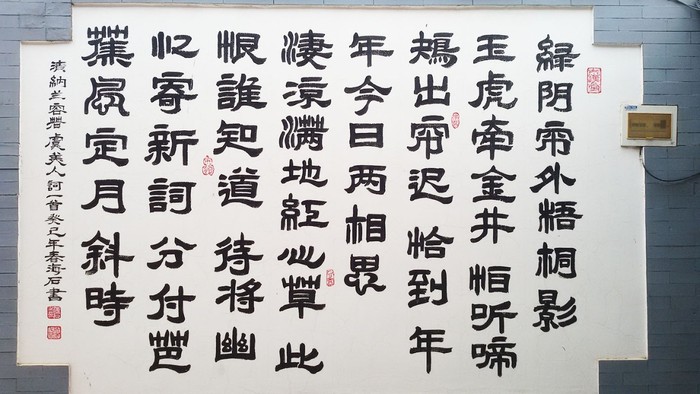 緑阴帘外梧桐影
玉虎牵金井 怕听啼
鴂出帘迟 恰到年
年今日两相思
淒凉滿地紅心草 此
恨誰知道 待将幽
忆寄新詞 分付芭
蕉風定月斜時
清納兰容若虞美人詞一首癸巳年春海石書